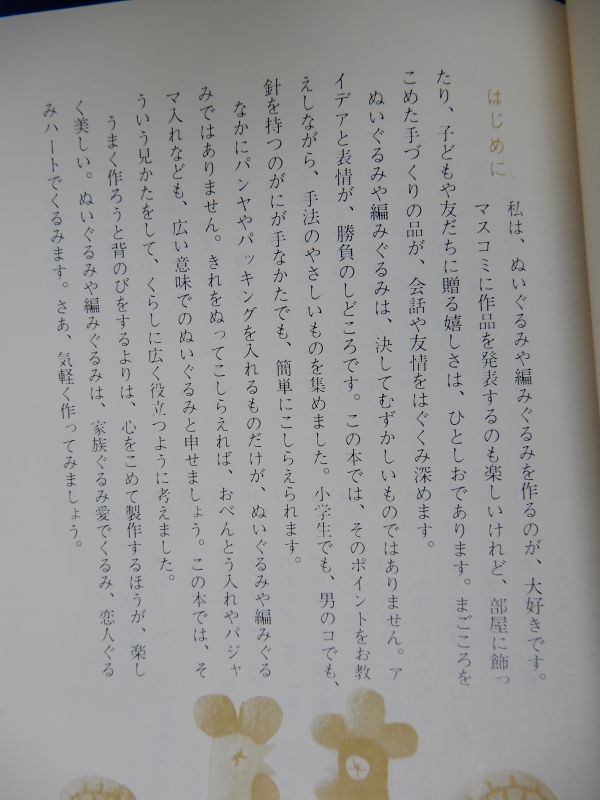 はじめに
私は、ぬいぐるみや編みぐるみを作るのが、大好きです。
マスコミに作品を発表するのも楽しいけれど、部屋に飾っ
たり、子どもや友だちに贈る嬉しさは、ひとしおであります。まごころを
こめた手づくりの品が、会話や友情をはぐくみ深めます。
ぬいぐるみや編みぐるみは、決してむずかしいものではありません。ア
イデアと表情が、勝負のしどころです。この本では、そのポイントをお教
えしながら、手法のやさしいものを集めました。小学生でも、男のコでも、
針を持つのがにが手なかたでも、簡単にこしらえられます。
なかにパンヤやパッキングを入れるものだけが、ぬいぐるみや編みぐる
みではありません。きれをぬってこしらえれば、おべんとう入れやパジャ
マ入れなども、広い意味でのぬいぐるみと申せましょう。この本では、そ
ういう見かたをして、くらしに広く役立つように考えました。
うまく作ろうと背のびをするよりは、心をこめて製作するほうが、楽し
く美しい。ぬいぐるみや編みぐるみは、家族ぐるみ愛でくるみ、恋人ぐる
みハートでくるみます。さあ、気軽く作ってみましょう。